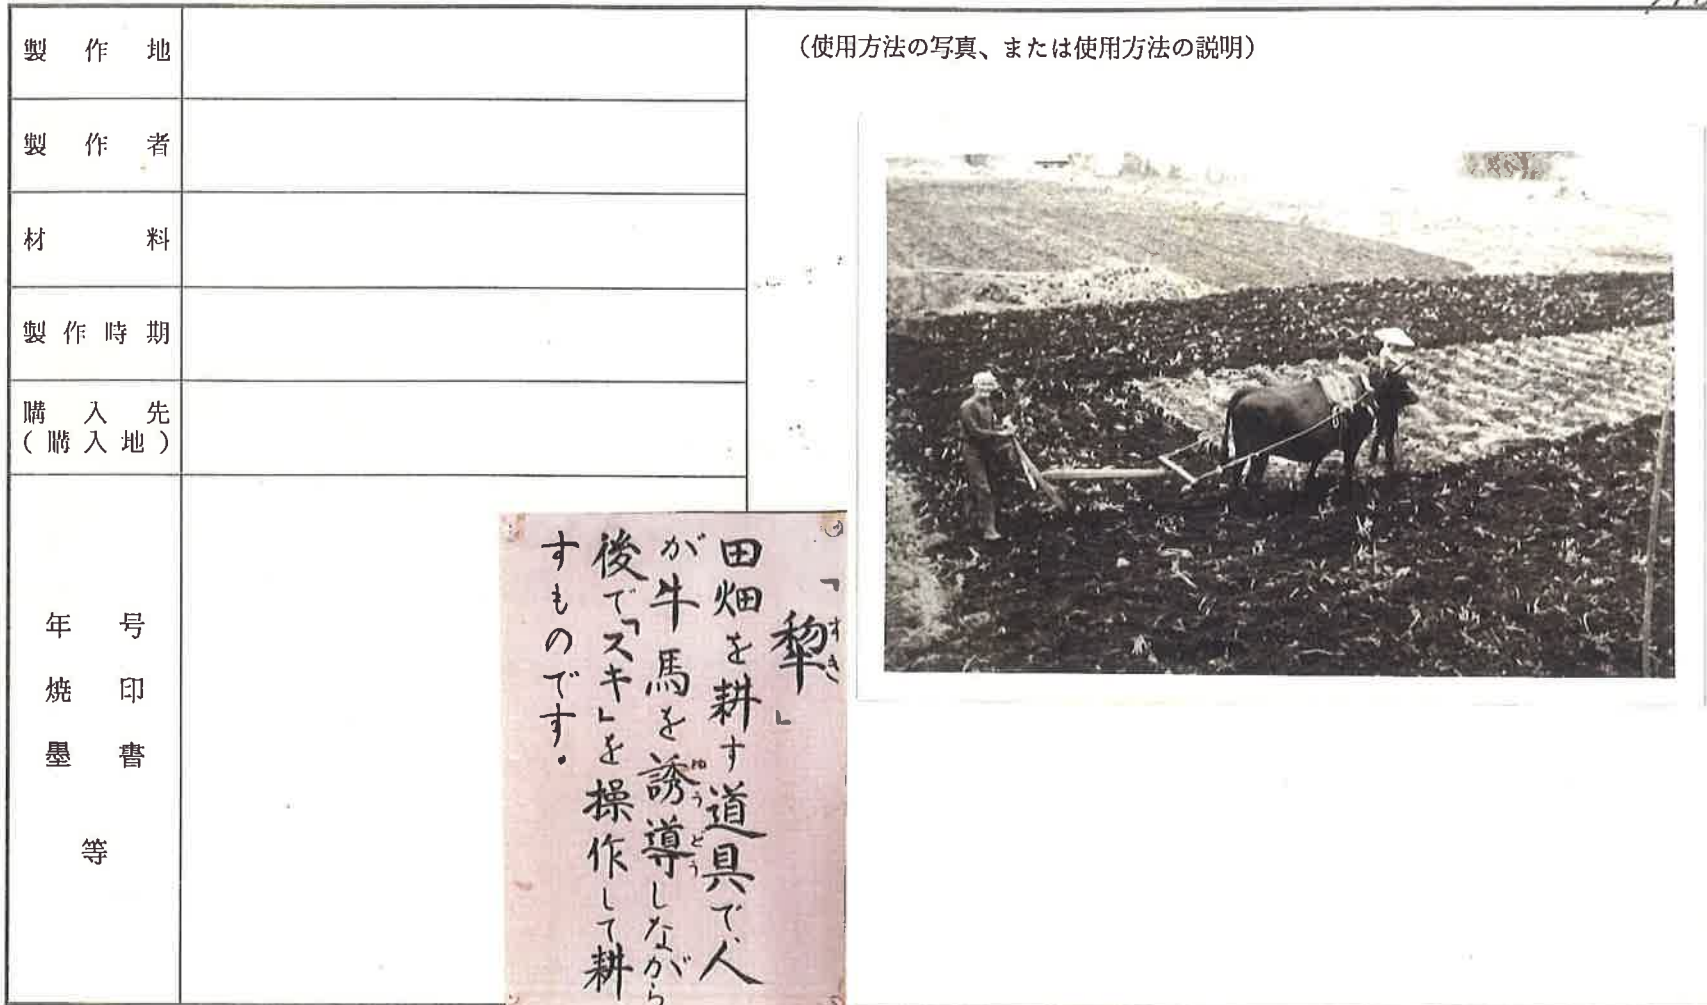 製作地
製作者
材料
製作時期
購入先
(購入地)
年号
焼印
墨書
等
(使用方法の写真、または使用方法の説明)
「犂すき」
田畑を耕す道具で、人
が牛馬を誘導ゆうどうしながら
後で「スキ」を操作して耕
すものです.